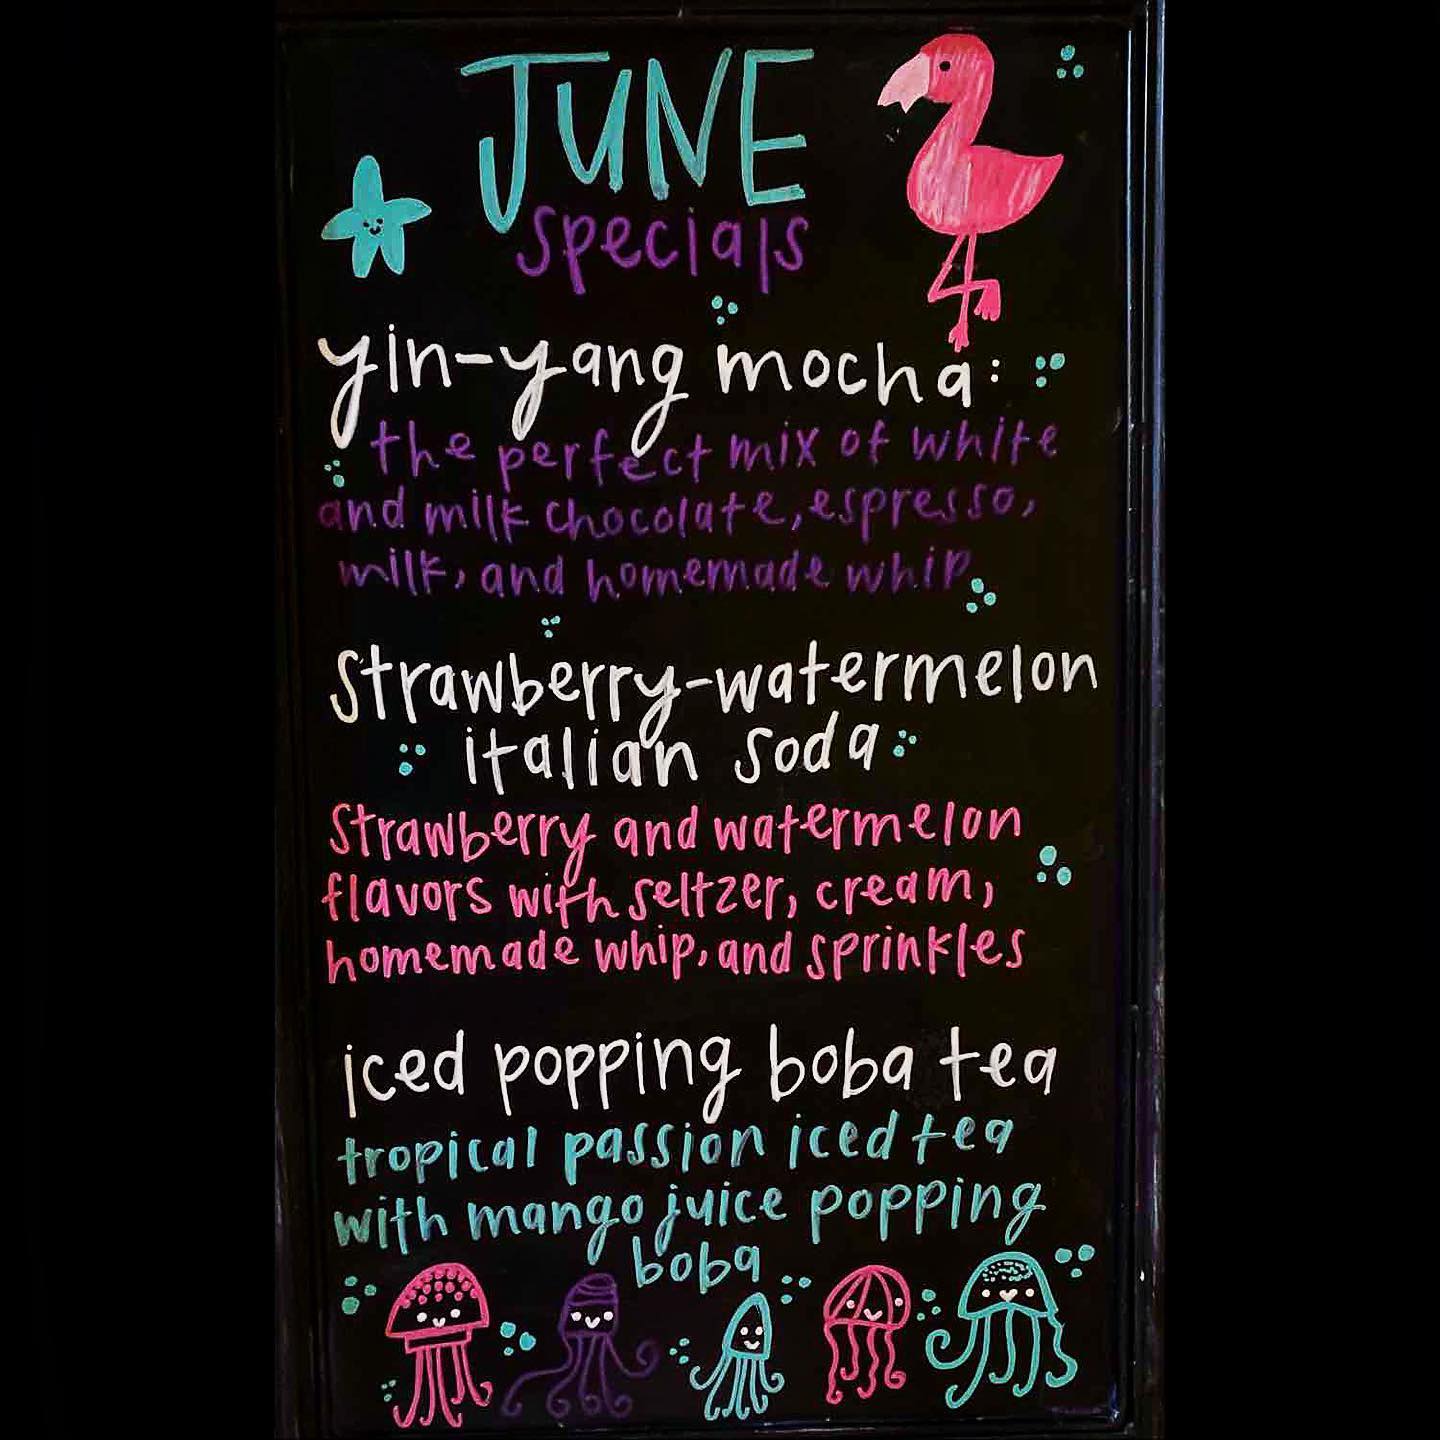 JUNE
specials
yin-yang mocha:
the perfect mix of white
and milk chocolate, espresso,
milk, and homemade whip
strawberry-watermelon
italian soda
strawberry and watermelon
flavors with seltzer, cream,
homemade whip, and sprinkles
iced popping boba tea
tropical passion iced tea
with mango juice popping
boba